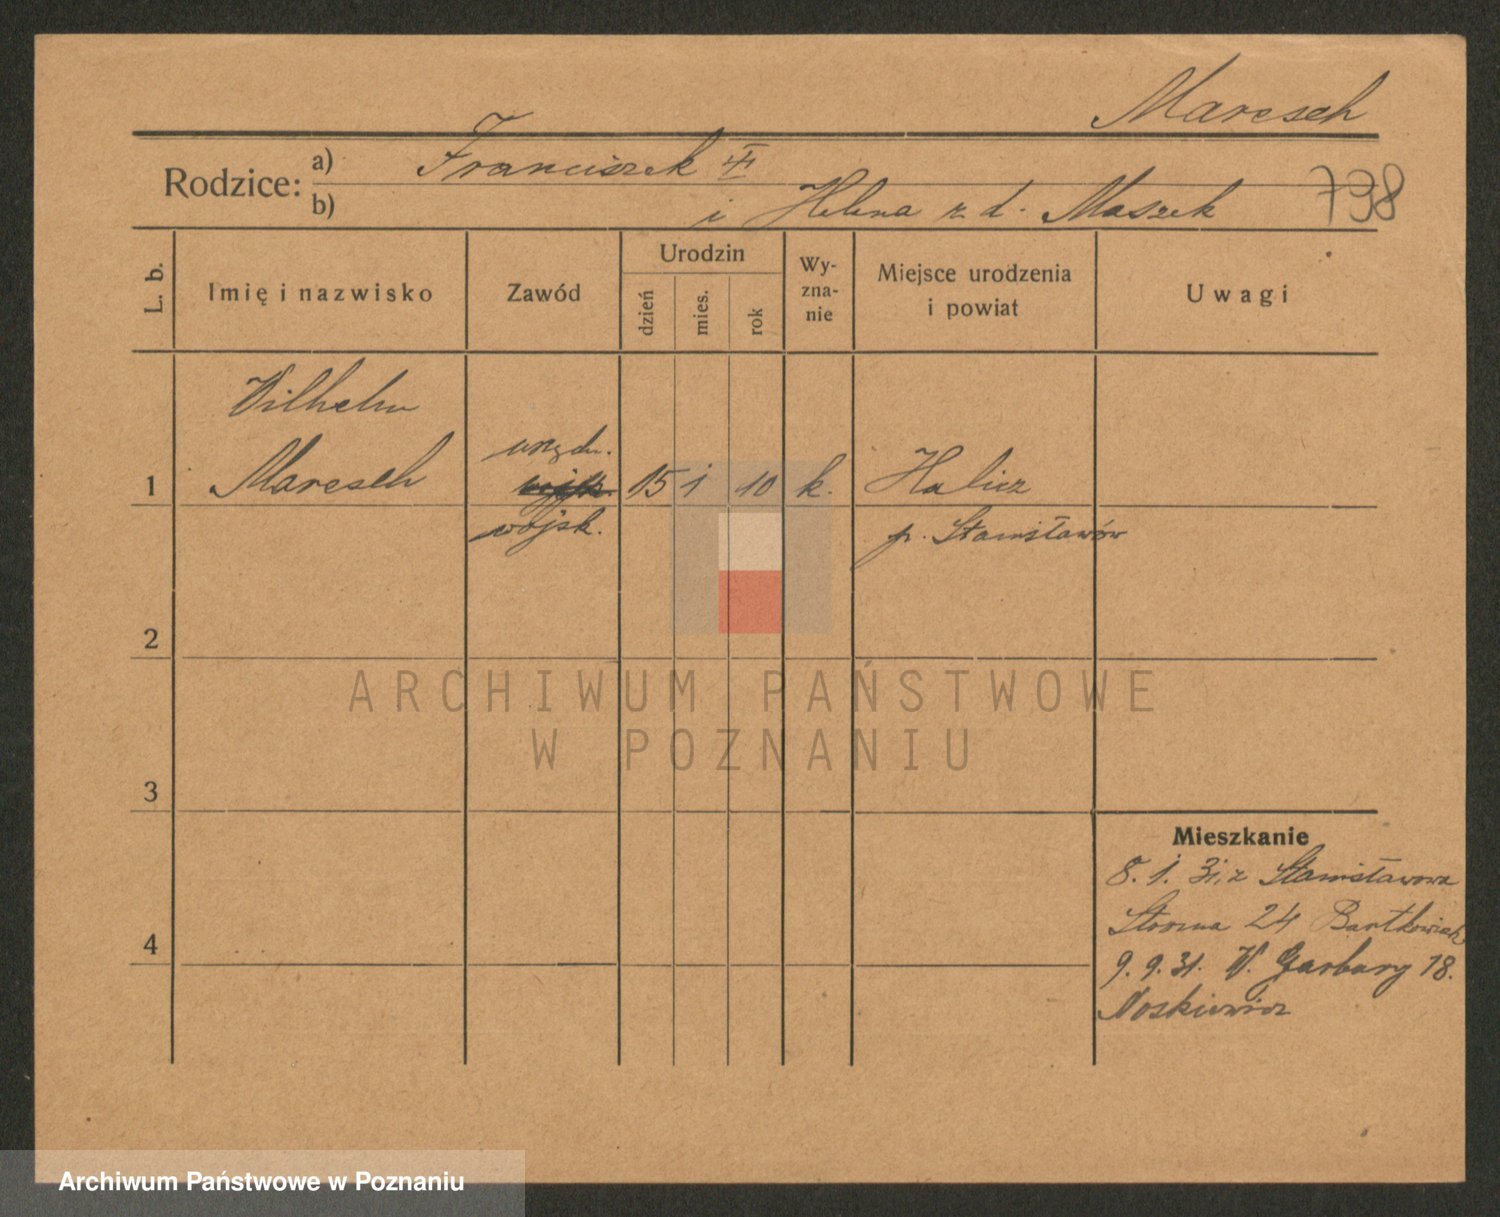 Maresch
Rodzice: a) Franciszek
b) i Helena z d. Maszek
798
L. b.
Imię i nazwisko
Zawód
Urodzin
dzień
mies.
rok
Wy-
zna-
nie
Miejsce urodzenia
i powiat
Uwagi
Wilhelm
Maresch
urzędn.
wojsk.
1
15 1 10 k.
Halicz
p. Stanisławów
2
3
4
Mieszkanie
8. 1. 31. z Stanisławowa
Słowna 24 Bartkowiak
9. 9. 31. W. Garbary 18.
Noskiewicz
ARCHIWUM PAŃSTWOWE
W POZNANIU
Archiwum Państwowe w Poznaniu